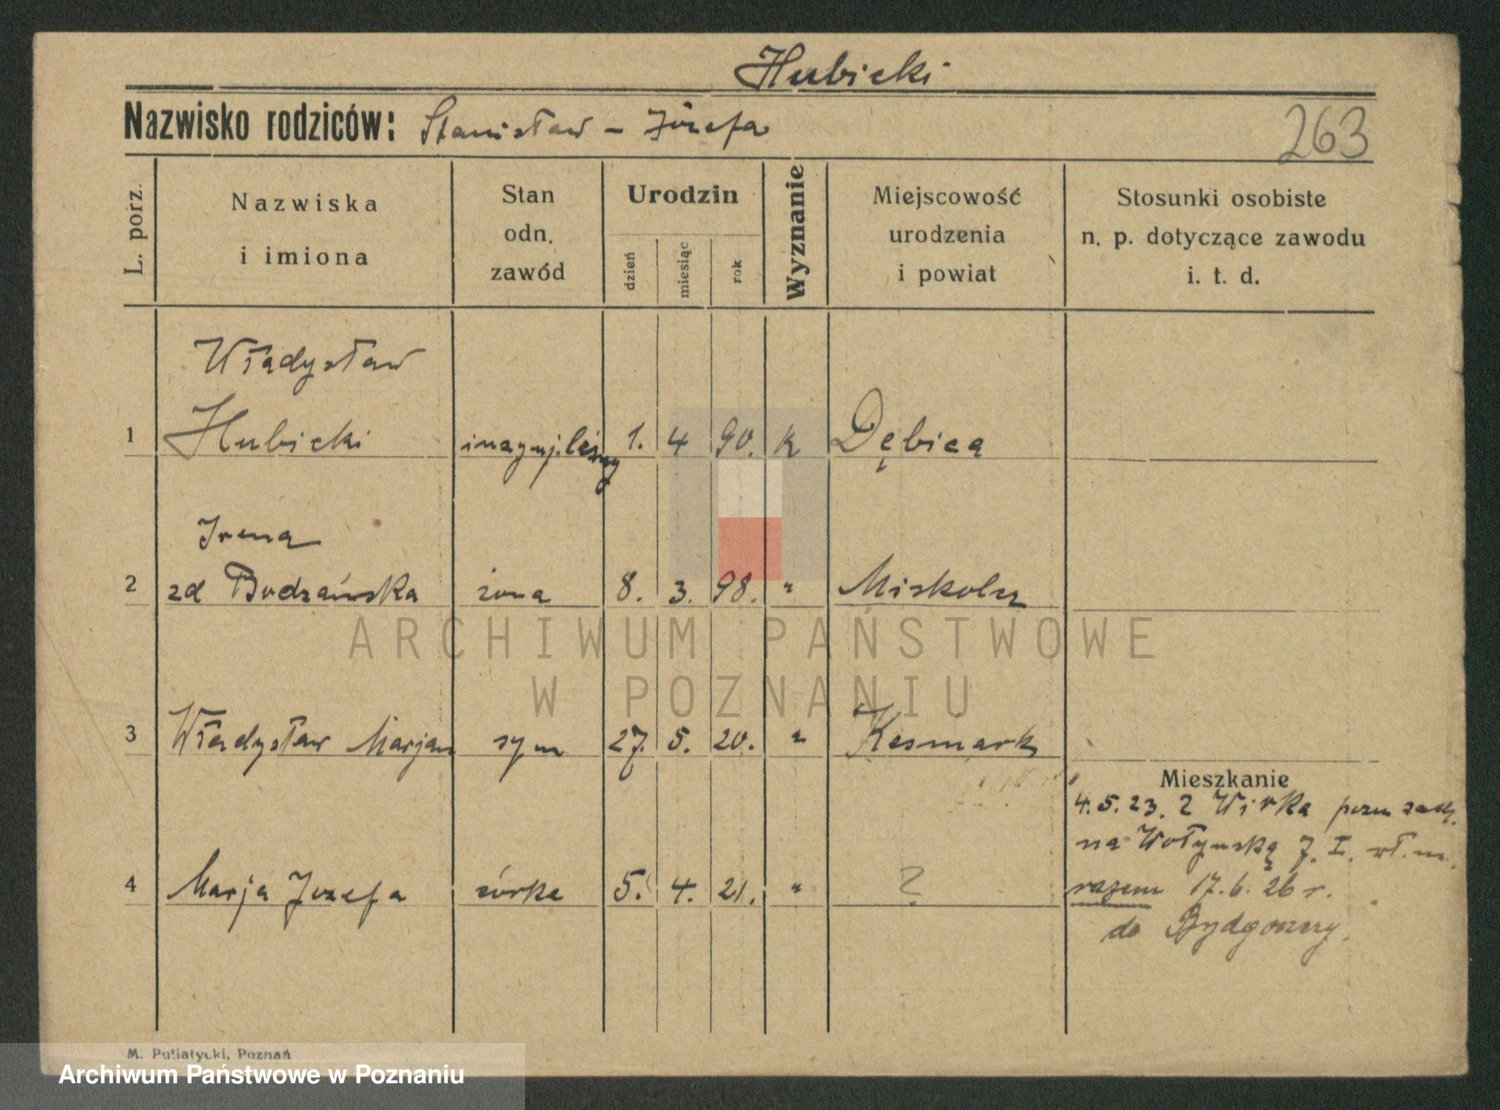 Hubicki
Nazwisko rodziców: Stanisław – Józefa
263
L. porz.
Nazwiska
i imiona
Stan
odn.
zawód
Urodzin
dzień
miesiąc
rok
Wyznanie
Miejscowość
urodzenia
i powiat
Stosunki osobiste
n. p. dotyczące zawodu
i. t. d.
Władysław
1 Hubicki leśny 1. 4 90. k Dębica
Irena
2 zd Budzańska żona 8. 3. 98. " Miskolcz
3 Władysław Marjan syn 27. 5. 20. " Kesmark
Mieszkanie
4.5.23. 2 Wirka
na Wołyńską 7. I.
4 Marja Jozefa córka 5. 4. 21. " ?
razem 17.6.26 r.
do Bydgoszczy.
ARCHIWUM PAŃSTWOWE
W POZNANIU
M. Putiatycki, Poznań
Archiwum Państwowe w Poznaniu